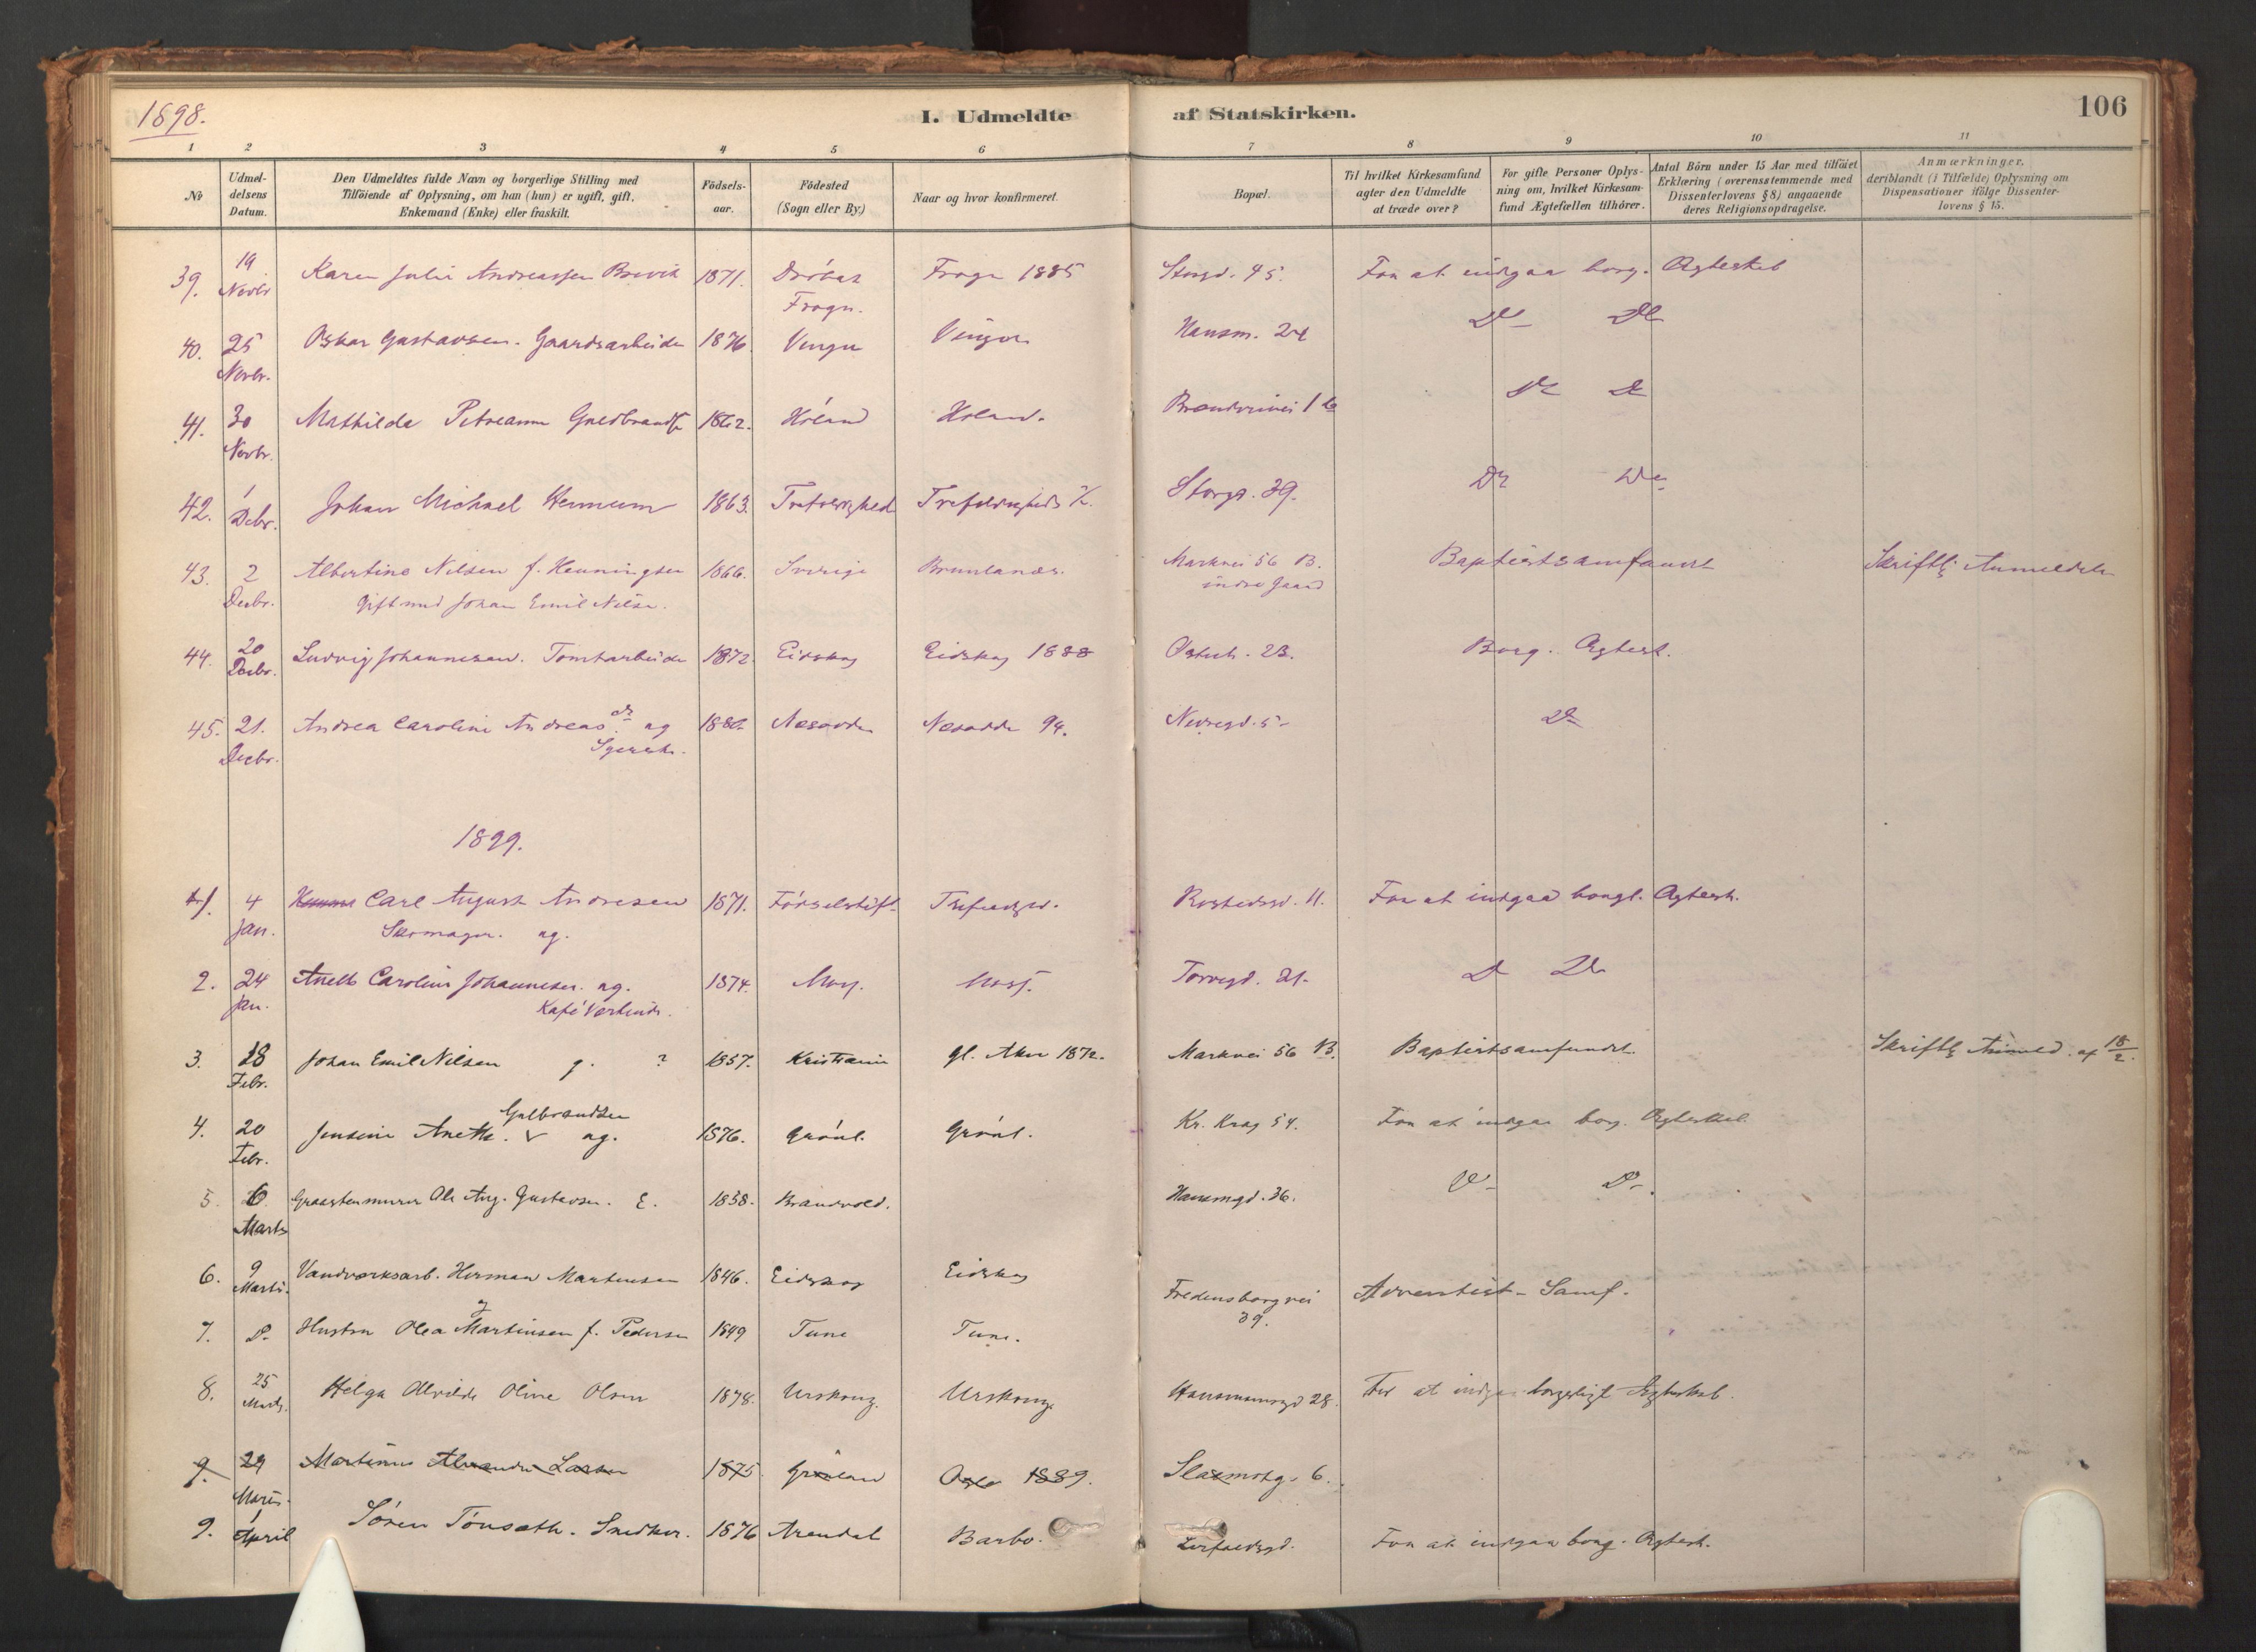 1898.
I. Udmeldte af Statskirken.
106
1 2 3 4 5 6 7 8 9 10 11
No
Udmel-
delsens
Datum.
Den Udmeldtes fulde Navn og borgerlige Stilling med
Tilföiende af Oplysning, om han (hun) er ugift, gift,
Enkemand (Enke) eller fraskilt.
Födsels-
aar.
Födested
(Sogn eller By.)
Naar og hvor konfirmeret.
Bopæl.
Til hvilket Kirkesamfund
agter den Udmeldte
at træde over?
For gifte Personer Oplys-
ning om, hvilket Kirkesam-
fund Ægtefællen tilhörer.
Antal Börn under 15 Aar med tilföiet
Erklæring (overensstemmende med
Dissenterlovens § 8) angaaende
deres Religionsopdragelse.
Anmærkninger,
deriblandt (i Tilfælde) Oplysning om
Dispensationer ifölge Dissenter-
lovens § 15.
39. 19 Novbr Karen Julie Andreassen Brevik 1871. Dröbak Frogn 1885 Storgd. 45. For at indgaa borg. Ægteskab
Frogn.
40. 25 Oskar Gustavsen. Gaardsarbeider 1876. Vinger Vinger Hausm. 24 Do Do
Novbr.
41. 30 Mathilde Petreanne Guldbrands 1862. Höland Höland. 1 b Do Do
Novbr.
42. 1 Debr. Johan Michael Hennum 1863. Trefoldighed Trefoldigheds K. Storgd. 39. Do Do
43. 2 Albertine Nilsen f. Henningsen 1866. Sverige Brunlanæs. Markvei 56 B. Baptistsamfundet Skriftl. Anmeldelse
Decbr. gift med Johan Emil Nilsen. indre Gaard
44. 20 Decbr. Ludvig Johannesen. Tomtarbeider 1872 Eidskog Eidskog 1888 Østerh. 23. Borg. Ægtesk.
45. 21. Andrea Caroline Andreasdr ug 1880. Nesodden Nesodden 94. Nedregd. 5 Do
Decbr. Syerske.
1899.
1. 4 Carl August Andresen 1871. Födselsstift. Trefoldighed. Rostedsgd. 11. For at indgaa borgl. Ægtesk.
Jan. Skomager. ug.
2. 24 Anette Caroline Johannesen. ug. 1874. Moss. Moss. Torvegd. 21. Do Do
Jan. Kafé Vertinde.
3. 18 Johan Emil Nilsen g. ? 1857. Kristiania gl. Aker 1872. Markvei 56 B. Baptistsamfundet. Skriftl. Anmeld. af 18/2.
Febr.
Gulbrandsen
4. 20 Jensine Anette. v ug. 1876. Grönl. Grönl. Kr. Krag 54. For at indgaa borg. Ægteskab.
Febr.
5. 6 Graastensmurer Ole Aug. Gustavsen. E. 1858. Brandvold. Hausmgd. 36. Do Do.
Marts
6. 9 Vandværksarb. Herman Martinsen 1846. Eidskog Eidskog Fredensborgvei Adventist-Samf.
Marts. 39.
7. Do Hustru Olea Martinsen f. Pedersen 1849 Tune Tune.
8. 25 Helga Alvilde Oline Olsen 1878. Urskoug. Urskoug. Hausmannsgd 28. For at indgaa borgerligt Ægteskab.
Marts.
9. 29 Martinus Alexander Larsen 1875 Grönland Oslo 1889. 6.
Marts.
9. 1 April Sören Tönseth. Snedker. 1876 Arendal Barbo. For at indgaa borg. Ægtesk.